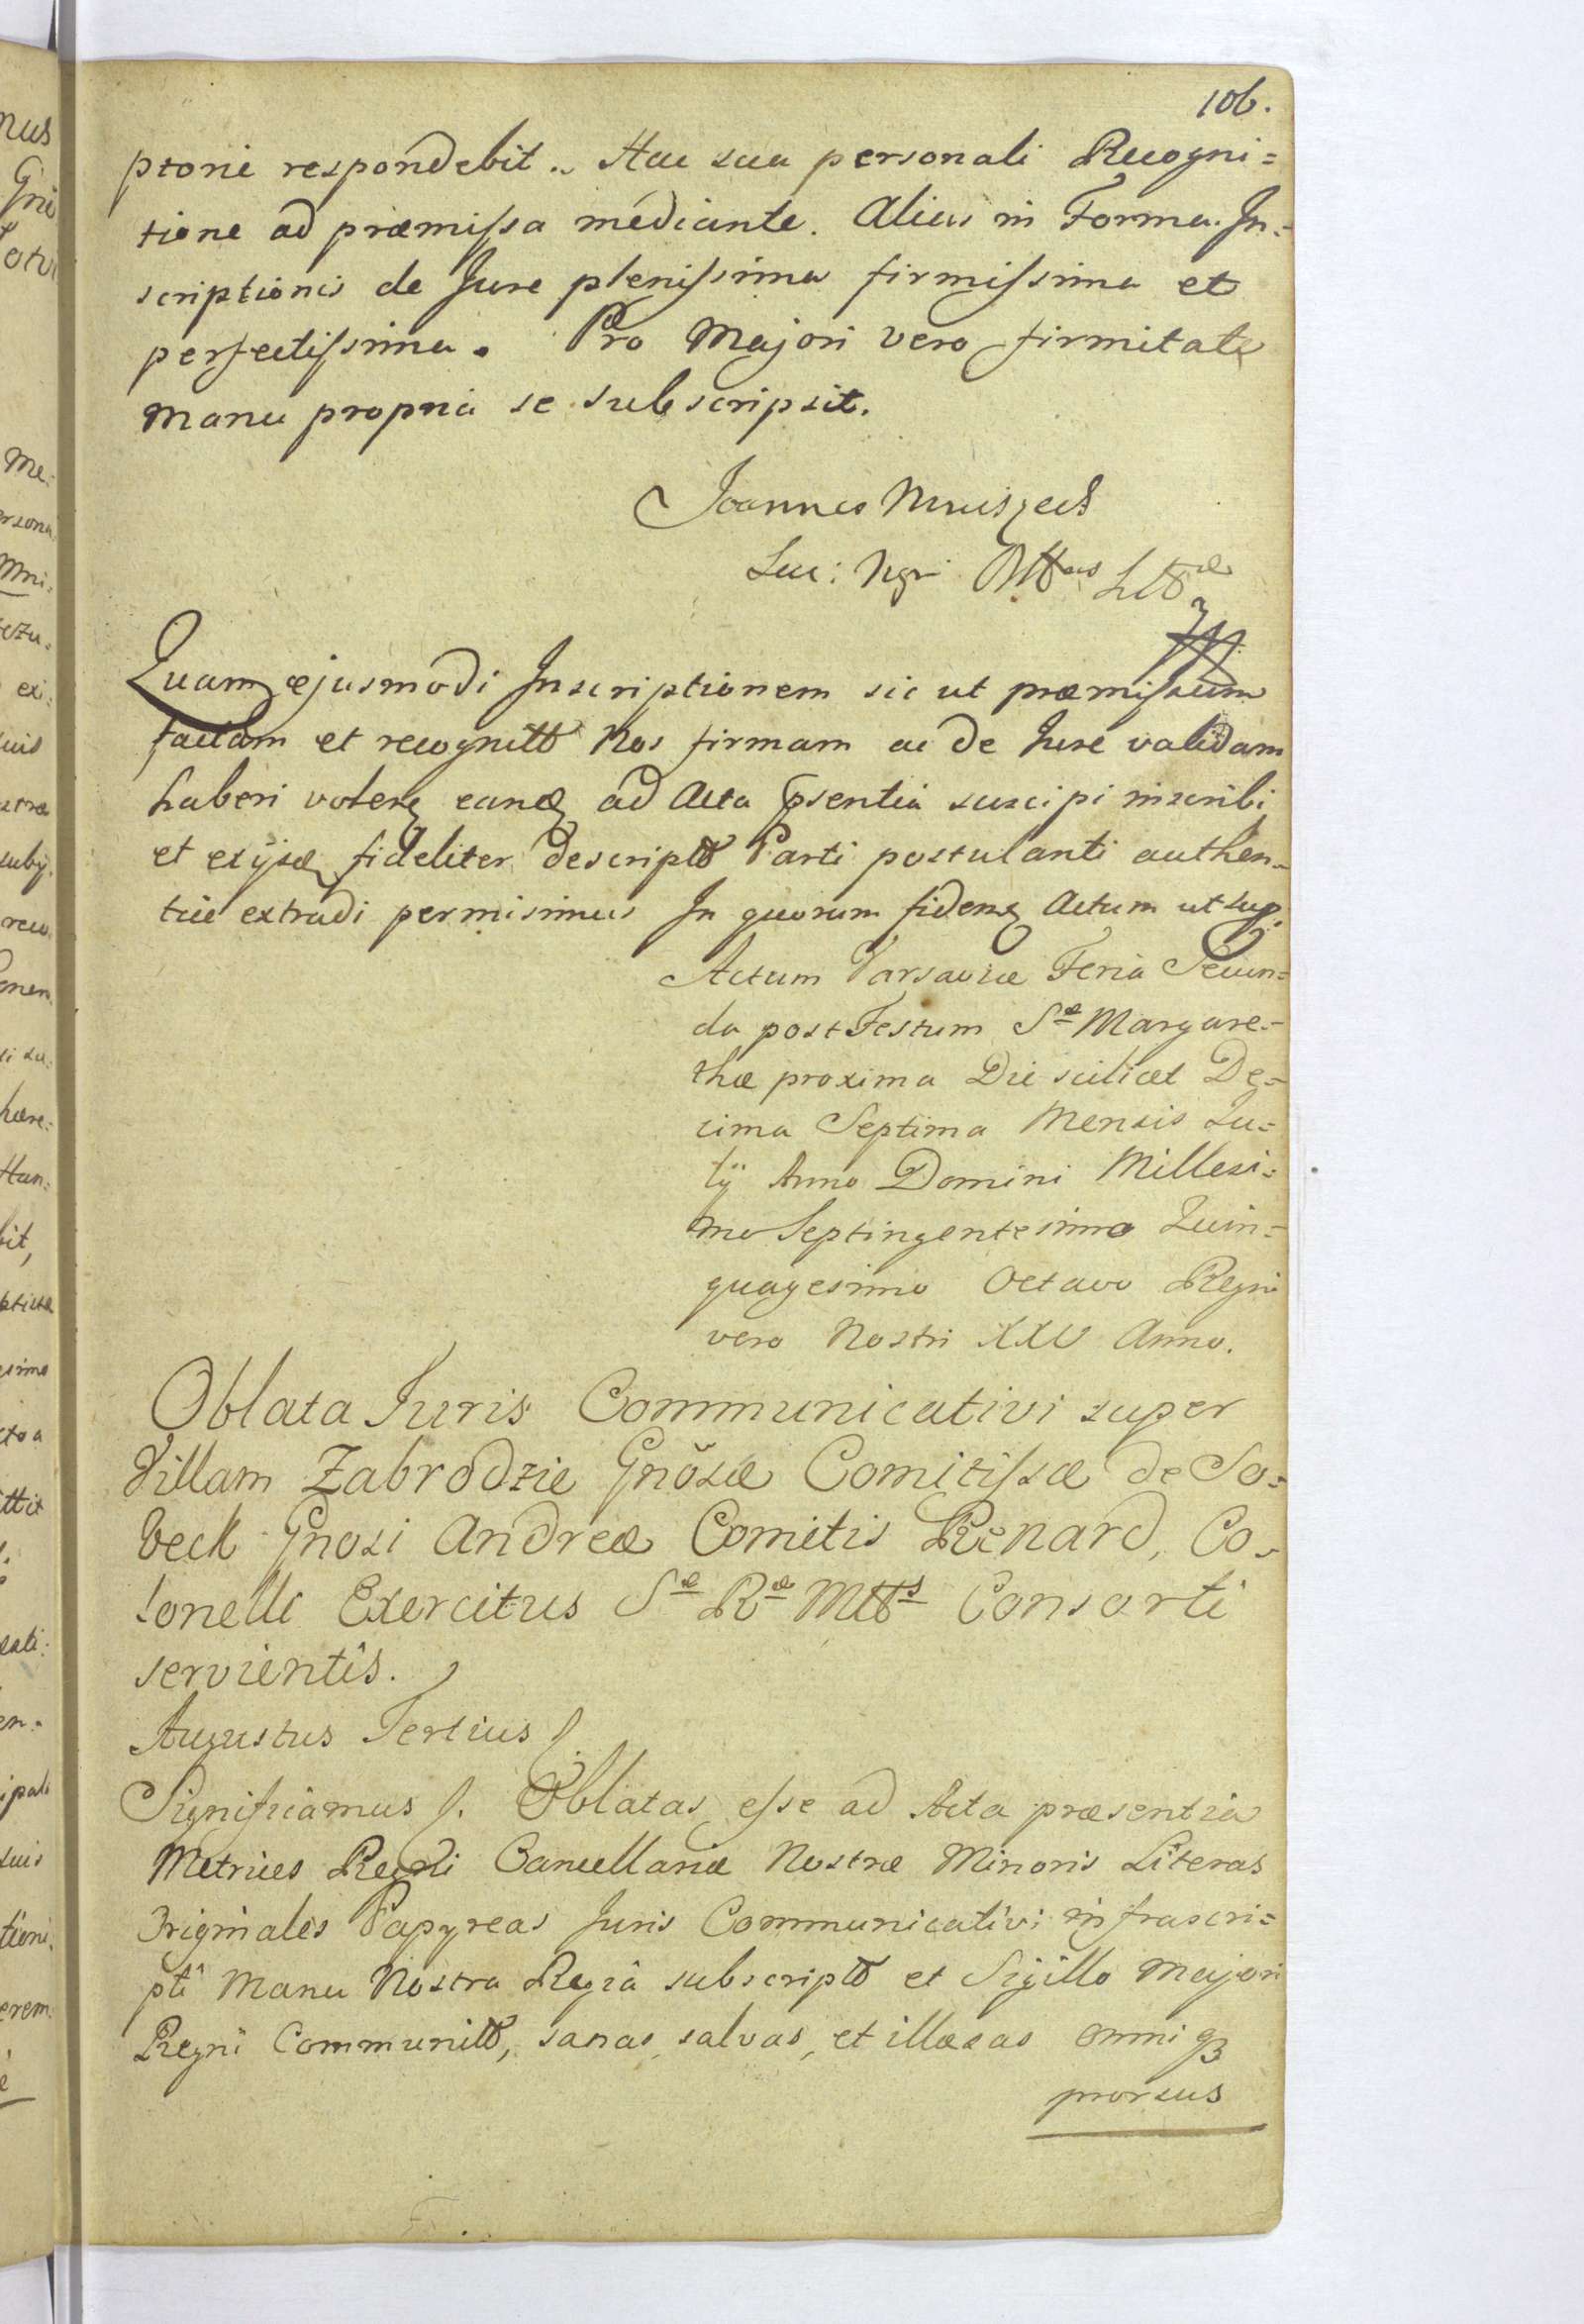 106.
ptorie respondebit. Hac sua personali Recogni=
tione ad præmissa mediante. Alias in Forma In=
scriptionis de Jure plenissima firmissima et
perfectissima. Pro Majori vero firmitate
Manu propria se subscripsit.
Joannes Mniszech
Suc:
Quam ejusmodi Inscriptionem sic ut præmissum
factam et recognitt Nos firmam ac de Jure validam
haberi volenq eanq ad Acta psentia suscipi inscribi
et exijsq fideliter descript Parti postulanti authen=
tice extradi permisimus In quorum fidemq Actum ut sup:
Actum Varsaviæ Feria Secun=
da post Festum Sæ Margare=
thæ proxima Die scilicet De=
cima Septima Mensis Ju=
lij Anno Domini Millesi=
mo Septingentesimo Quin=
quagesimo Octavo Regni
vero Nostri XXV Anno.
Oblata Juris Communicativi super
Villam Zabrodzie Gnosæ Comitissæ de So=
beck Gnosi Andreæ Comitis Renard, Co=
lonelli Exercitus Sæ Ræ Mttis Consorti
servientis.
Augustus Tertius
Significamus. Oblatas esse ad Acta præsentia
Metrices Regni Cancellariæ Nostræ Minoris Literas
Originales Papyreas Juris Communicativi infrascri=
pti Manu Nostra Regia subscript et Sigillo Majori
Regni Communitt, sanas, salvas, et illæsas omniq3
prorsus